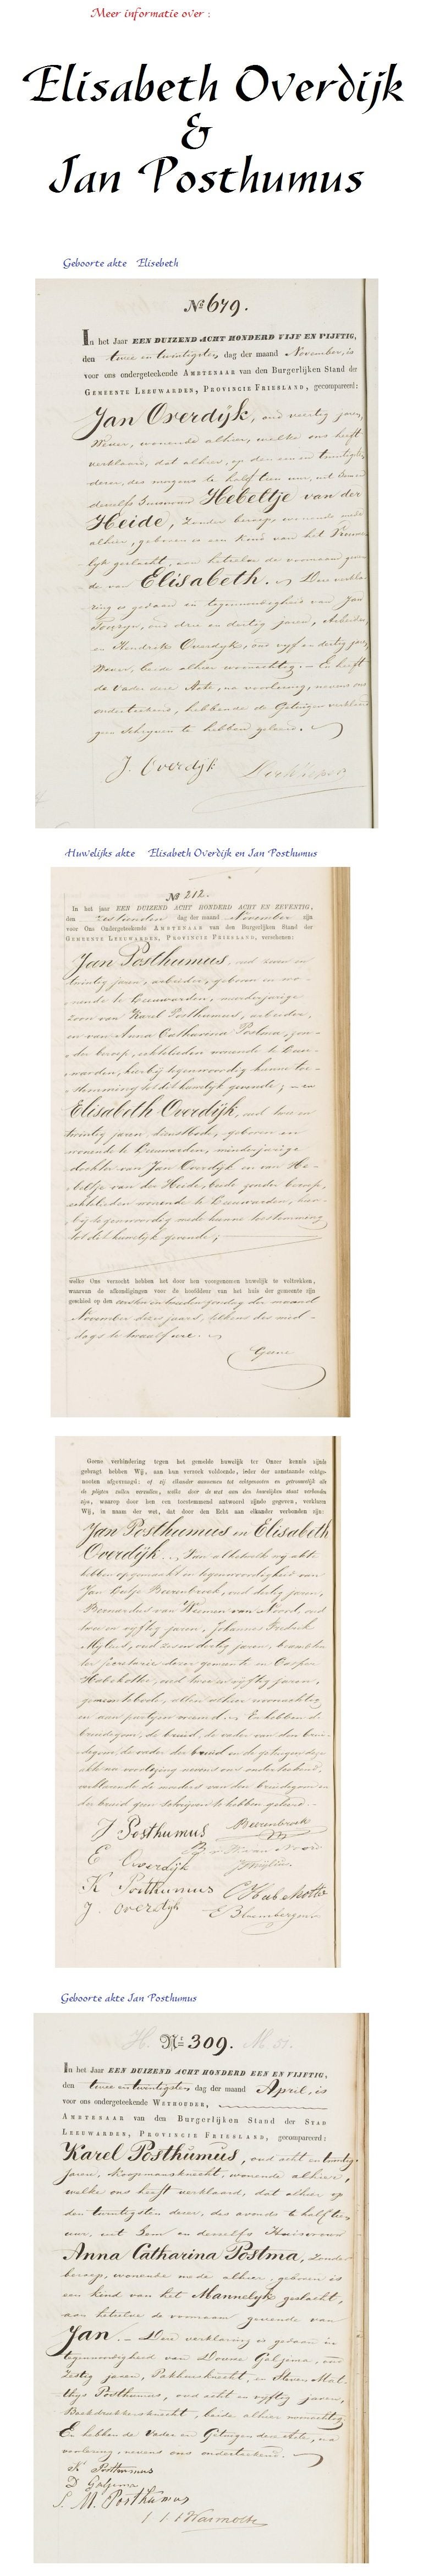 Meer informatie over :
Elisabeth Overdijk
&
Jan Posthumus
Geboorte akte Elisebeth
No 679.
In het Jaar EEN DUIZEND ACHT HONDERD VIJF EN VIJFTIG,
den twee en twintigsten dag der maand November, is
voor ons ondergeteekende AMBTENAAR van den Burgerlijken Stand der
GEMEENTE LEEUWARDEN, PROVINCIE FRIESLAND, gecompareerd:
Jan Overdijk, oud veertig jaren,
Wever, wonende alhier, welke ons heeft
verklaard, dat alhier, op den een en twintigsten
dezer, des morgens te half tien ure, uit
deszelfs huisvrouw Hebeltje van der
Heide, zonder beroep, wonende mede
alhier, geboren is een kind van het Vrouwe-
lijk geslacht, aan hetwelk de voornaam geven-
de van Elisabeth. Deze verkla-
ring is gedaan in tegenwoordigheid van Jan
oud drie en dertig jaren, Arbeider,
en Hendrik Overdijk, oud vijf en dertig jaren,
Wever, beide alhier woonachtig. En heeft
de Vader deze Akte, na voorlezing, nevens ons
onderteekend, hebbende de Getuigen verklaard
geen schrijven te hebben geleerd.
J. Overdijk
Huwelijks akte Elisabeth Overdijk en Jan Posthumus
No 212.
In het jaar EEN DUIZEND ACHT HONDERD ACHT EN ZEVENTIG,
den zestienden dag der maand November zijn
voor Ons Ondergeteekende AMBTENAAR van den Burgerlijken Stand der
GEMEENTE LEEUWARDEN, PROVINCIE FRIESLAND, verschenen:
Jan Posthumus, oud zeven en
twintig jaren, arbeider, geboren en wo-
nende te Leeuwarden, meerderjarige
zoon van Karel Posthumus, arbeider,
en van Anna Catharina Postma, zon-
der beroep, echtelieden wonende te Leeu-
warden, hierbij tegenwoordig hunne toe-
stemming tot dit huwelijk gevende; en
Elisabeth Overdijk, oud twee en
twintig jaren, dienstbode, geboren en
wonende te Leeuwarden, minderjarige
dochter van Jan Overdijk en van He-
beltje van der Heide, beide zonder beroep,
echtelieden wonende te Leeuwarden, hier-
bij tegenwoordig mede hunne toestemming
tot dit huwelijk gevende;
welke Ons verzocht hebben het door hen voorgenomen huwelijk te voltrekken,
waarvan de afkondigingen voor de hoofddeur van het huis der gemeente zijn
geschied op den eersten zondag der maand
November dezes jaars, telkens des mid-
dags te twaalf ure.
Geene
Geene verhindering tegen het gemelde huwelijk ter Onzer kennis zijnde
gebragt hebben Wij, aan hun verzoek voldoende, ieder der aanstaande echtge-
nooten afgevraagd: of zij elkander aannemen tot echtgenooten en getrouwelijk al
de pligten zullen vervullen, welke door de wet aan den huwelijken staat verbonden
zijn, waarop door hen een toestemmend antwoord zijnde gegeven, verklaren
Wij, in naam der wet, dat door den Echt aan elkander verbonden zijn:
Jan Posthumus en Elisabeth
Overdijk. Van al hetwelk wij akte
hebben opgemaakt in tegenwoordigheid van
Jan Beerenbroek, oud dertig jaren,
Bernardus van Noord, oud
twee en vijftig jaren, Johannes Frederik
oud zes en dertig jaren,
ter secretarie dezer gemeente en Caspar
oud twee en vijftig jaren,
gemeentebode, allen alhier woonachtig
en aan partijen vreemd. En hebben de
bruidegom, de bruid, de vader van den brui-
degom, de vader der bruid en de getuigen deze
akte na voorlezing nevens ons onderteekend,
verklarende de moeders van den bruidegom en
der bruid geen schrijven te hebben geleerd.
J Posthumus
Beerenbroek
E Overdijk
K Posthumus
J. Overdijk
Geboorte akte Jan Posthumus
No 309.
In het Jaar EEN DUIZEND ACHT HONDERD EEN EN VIJFTIG,
den twee en twintigsten dag der maand April, is
voor ons ondergeteekende WETHOUDER,
AMBTENAAR van den Burgerlijken Stand der STAD
LEEUWARDEN, PROVINCIE FRIESLAND, gecompareerd:
Karel Posthumus, oud acht en twintig
jaren, Koopmansknecht, wonende alhier,
welke ons heeft verklaard, dat alhier op
den twintigsten dezer, des avonds te half tien
ure, uit hem en deszelfs Huisvrouw
Anna Catharina Postma, zonder
beroep, wonende mede alhier, geboren is
een kind van het Mannelijk geslacht,
aan hetwelk de voornaam gevende van
Jan. Deze verklaring is gedaan in
tegenwoordigheid van Douwe Galjema, oud
zestig jaren, Pakhuisknecht, en Steven Mat-
thijs Posthumus, oud acht en vijftig jaren,
Boekdrukkersknecht, beide alhier woonachtig.
En hebben de Vader en Getuigen deze Akte, na
voorlezing, nevens ons onderteekend.
K Posthumus
D Galjema
S. M. Posthumus